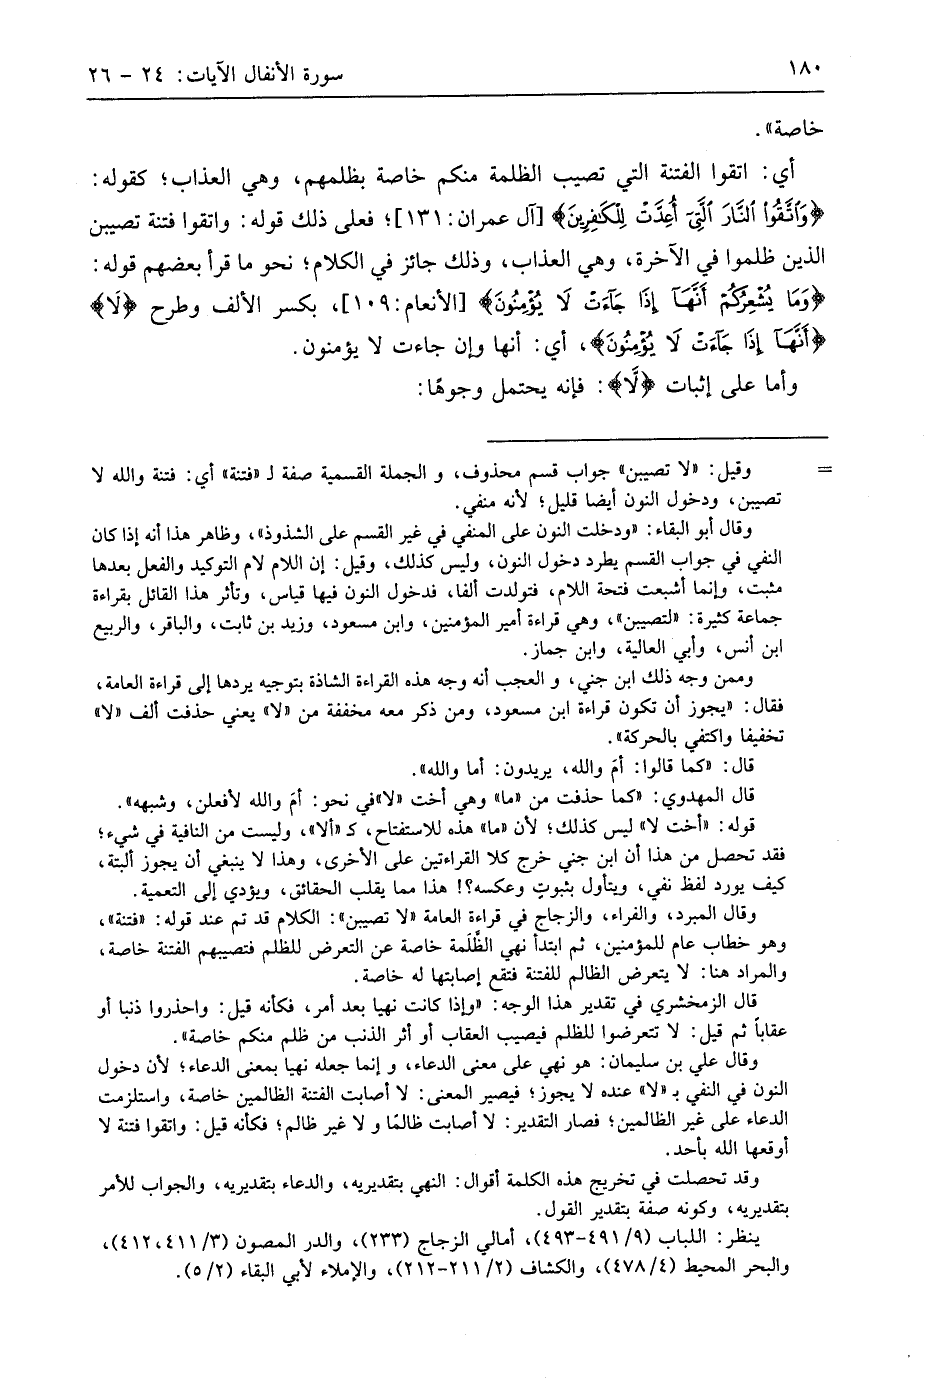 ١٨٠
سورة الأنفال الآيات: ٢٤ - ٢٦
خاصة».
أي: اتقوا الفتنة التي تصيب الظلمة منكم خاصة بظلمهم، وهي العذاب؛ كقوله:
﴿وَٱتَّقُوا۟ ٱلنَّارَ ٱلَّتِىٓ أُعِدَّتْ لِلْكَٰفِرِينَ﴾ [آل عمران: ١٣١]؛ فعلى ذلك قوله: واتقوا فتنة تصيبن
الذين ظلموا في الآخرة، وهي العذاب، وذلك جائز في الكلام؛ نحو ما قرأ بعضهم قوله:
﴿وَمَا يُشْعِرُكُمْ أَنَّهَآ إِذَا جَآءَتْ لَا يُؤْمِنُونَ﴾ [الأنعام: ١٠٩]، بكسر الألف وطرح ﴿لَا﴾
﴿أَنَّهَآ إِذَا جَآءَتْ لَا يُؤْمِنُونَ﴾، أي: أنها وإن جاءت لا يؤمنون.
وأما على إثبات ﴿لَّا﴾: فإنه يحتمل وجوهًا:
= وقيل: «لا تصيبن» جواب قسم محذوف، و الجملة القسمية صفة لـ «فتنة» أي: فتنة والله لا
تصيبن، ودخول النون أيضا قليل؛ لأنه منفي.
وقال أبو البقاء: «ودخلت النون على المنفي في غير القسم على الشذوذ»، وظاهر هذا أنه إذا كان
النفي في جواب القسم يطرد دخول النون، وليس كذلك، وقيل: إن اللام لام التوكيد والفعل بعدها
مثبت، وإنما أشبعت فتحة اللام، فتولدت ألفا، فدخول النون فيها قياس، وتأثر هذا القائل بقراءة
جماعة كثيرة: «لتصيبن»، وهي قراءة أمير المؤمنين، وابن مسعود، وزيد بن ثابت، والباقر، والربيع
ابن أنس، وأبي العالية، وابن جماز.
وممن وجه ذلك ابن جني، و العجب أنه وجه هذه القراءة الشاذة بتوجيه يردها إلى قراءة العامة،
فقال: «يجوز أن تكون قراءة ابن مسعود، ومن ذكر معه مخففة من «لا» يعني حذفت ألف «لا»
تخفيفا واكتفي بالحركة».
قال: «كما قالوا: أمَ والله، يريدون: أما والله».
قال المهدوي: «كما حذفت من «ما» وهي أخت «لا»في نحو: أمَ والله لأفعلن، وشبهه».
قوله: «أخت لا» ليس كذلك؛ لأن «ما» هذه للاستفتاح، كـ «ألا»، وليست من النافية في شيء؛
فقد تحصل من هذا أن ابن جني خرج كلا القراءتين على الأخرى، وهذا لا ينبغي أن يجوز ألبتة،
كيف يورد لفظ نفي، ويتأول بثبوتٍ وعكسه؟! هذا مما يقلب الحقائق، ويؤدي إلى التعمية.
وقال المبرد، والفراء، والزجاج في قراءة العامة «لا تصيبن»: الكلام قد تم عند قوله: «فتنة»،
وهو خطاب عام للمؤمنين، ثم ابتدأ نهي الظَّلَمة خاصة عن التعرض للظلم فتصيبهم الفتنة خاصة،
والمراد هنا: لا يتعرض الظالم للفتنة فتقع إصابتها له خاصة.
قال الزمخشري في تقدير هذا الوجه: «وإذا كانت نهيا بعد أمر، فكأنه قيل: واحذروا ذنبا أو
عقاباً ثم قيل: لا تتعرضوا للظلم فيصيب العقاب أو أثر الذنب من ظلم منكم خاصة».
وقال علي بن سليمان: هو نهي على معنى الدعاء، و إنما جعله نهيا بمعنى الدعاء؛ لأن دخول
النون في النفي بـ «لا» عنده لا يجوز؛ فيصير المعنى: لا أصابت الفتنة الظالمين خاصة، واستلزمت
الدعاء على غير الظالمين؛ فصار التقدير: لا أصابت ظالمًا و لا غير ظالم؛ فكأنه قيل: واتقوا فتنة لا
أوقعها الله بأحد.
وقد تحصلت في تخريج هذه الكلمة أقوال: النهي بتقديريه، والدعاء بتقديريه، والجواب للأمر
بتقديريه، وكونه صفة بتقدير القول.
ينظر: اللباب (٩/ ٤٩١-٤٩٣)، أمالي الزجاج (٢٣٣)، والدر المصون (٣/ ٤١١، ٤١٢)،
والبحر المحيط (٤/ ٤٧٨)، والكشاف (٢/ ٢١١-٢١٢)، والإملاء لأبي البقاء (٢/ ٥).